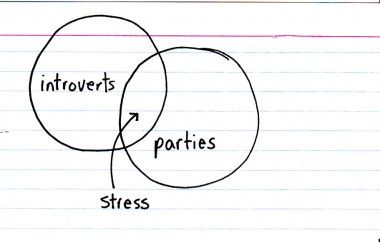 introverts
parties
stress